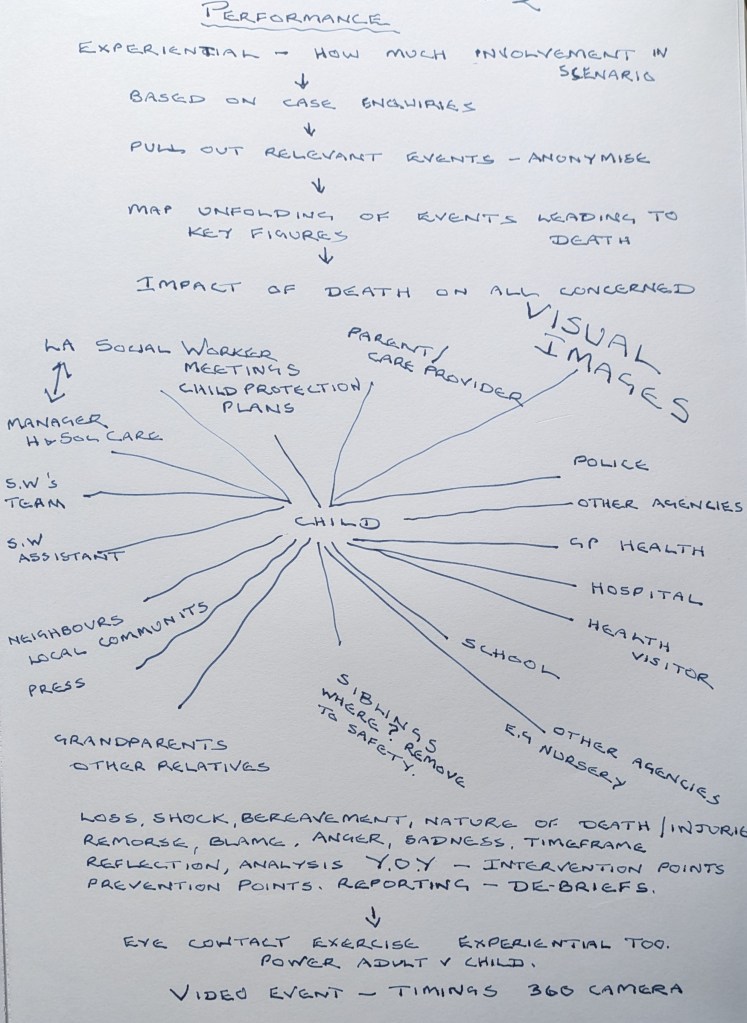 PERFORMANCE
EXPERIENTIAL - HOW MUCH INVOLVEMENT IN
SCENARIO
↓
BASED ON CASE ENQUIRIES
↓
PULL OUT RELEVANT EVENTS - ANONYMISE
↓
MAP UNFOLDING OF EVENTS LEADING TO
KEY FIGURES DEATH
↓
IMPACT OF DEATH ON ALL CONCERNED
VISUAL
IMAGES
LA SOCIAL WORKER
MEETINGS
CHILD PROTECTION
PLANS
PARENT/
CARE PROVIDER
MANAGER
H & SOC CARE
S.W's
TEAM
S.W
ASSISTANT
CHILD
POLICE
OTHER AGENCIES
GP HEALTH
HOSPITAL
HEALTH
VISITOR
SCHOOL
OTHER AGENCIES
E.G NURSERY
SIBLINGS
WHERE? REMOVE
TO SAFETY.
NEIGHBOURS
LOCAL COMMUNITS
PRESS
GRANDPARENTS
OTHER RELATIVES
LOSS, SHOCK, BEREAVEMENT, NATURE OF DEATH/INJURIE
REMORSE, BLAME, ANGER, SADNESS, TIMEFRAME
REFLECTION, ANALYSIS Y.O.Y - INTERVENTION POINTS
PREVENTION POINTS. REPORTING - DE-BRIEFS.
↓
EYE CONTACT EXERCISE EXPERIENTIAL TOO.
POWER ADULT V CHILD.
VIDEO EVENT - TIMINGS 360 CAMERA